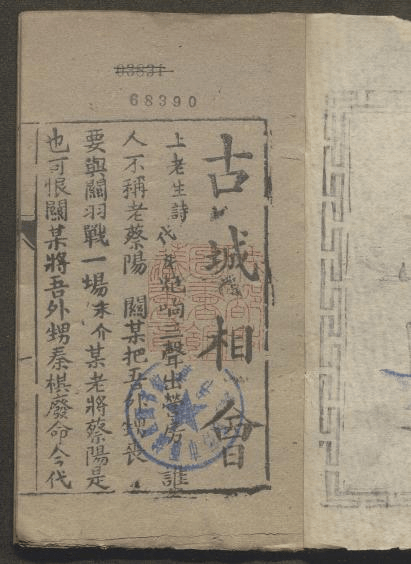 03831
68390
古城相會
上老生詩 代年炮响三聲出營房 誰
人不稱老蔡陽 關某把吾外甥丧
要與關羽戰一場 末介某老將蔡陽是
也可恨關某將吾外甥秦棋廢命今代